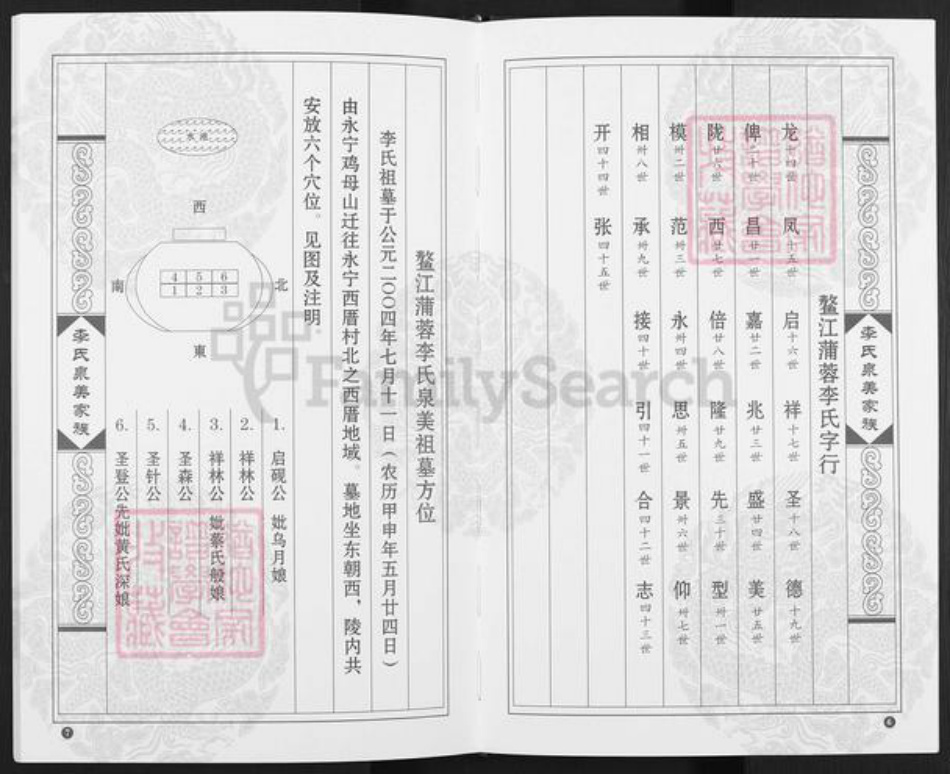 李氏泉美家族
鳌江蒲蓉李氏字行
龙十四世 凤十五世 启十六世 祥十七世 圣十八世 德十九世
俾二十世 昌廿一世 嘉廿二世 兆廿三世 盛廿四世 美廿五世
陇廿六世 西廿七世 倍廿八世 隆廿九世 先三十世 型卅一世
模卅二世 范卅三世 永卅四世 思卅五世 景卅六世 仰卅七世
相卅八世 承卅九世 接四十世 引四十一世 合四十二世 志四十三世
开四十四世 张四十五世
6
鳌江蒲蓉李氏泉美祖墓方位
李氏祖墓于公元二〇〇四年七月十一日（农历甲申年五月廿四日）
由永宁鸡母山迁往永宁西厝村北之西厝地域。墓地坐东朝西，陵内共
安放六个穴位。见图及注明。
水池
西
南
北
4 5 6
1 2 3
東
1. 启砚公 妣乌月娘
2. 祥林公
3. 祥林公 妣蔡氏般娘
4. 圣森公
5. 圣针公
6. 圣登公先妣黄氏深娘
李氏泉美家族
7
FamilySearch